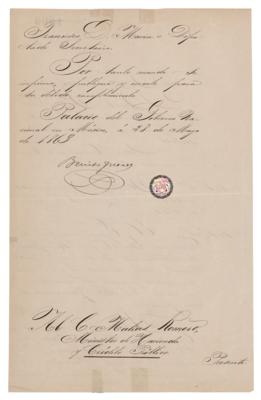 Francisco D. Macin = Dipu
tado Secretario.
Por tanto mando se
imprima, publique y circule para
su debido cumplimiento.
Palacio del Gobierno Na-
cional en México, á 28 de Mayo
de 1868
Benito Juarez
Al C. Matias Romero,
Ministro de Hacienda
y Crédito Público
Presente